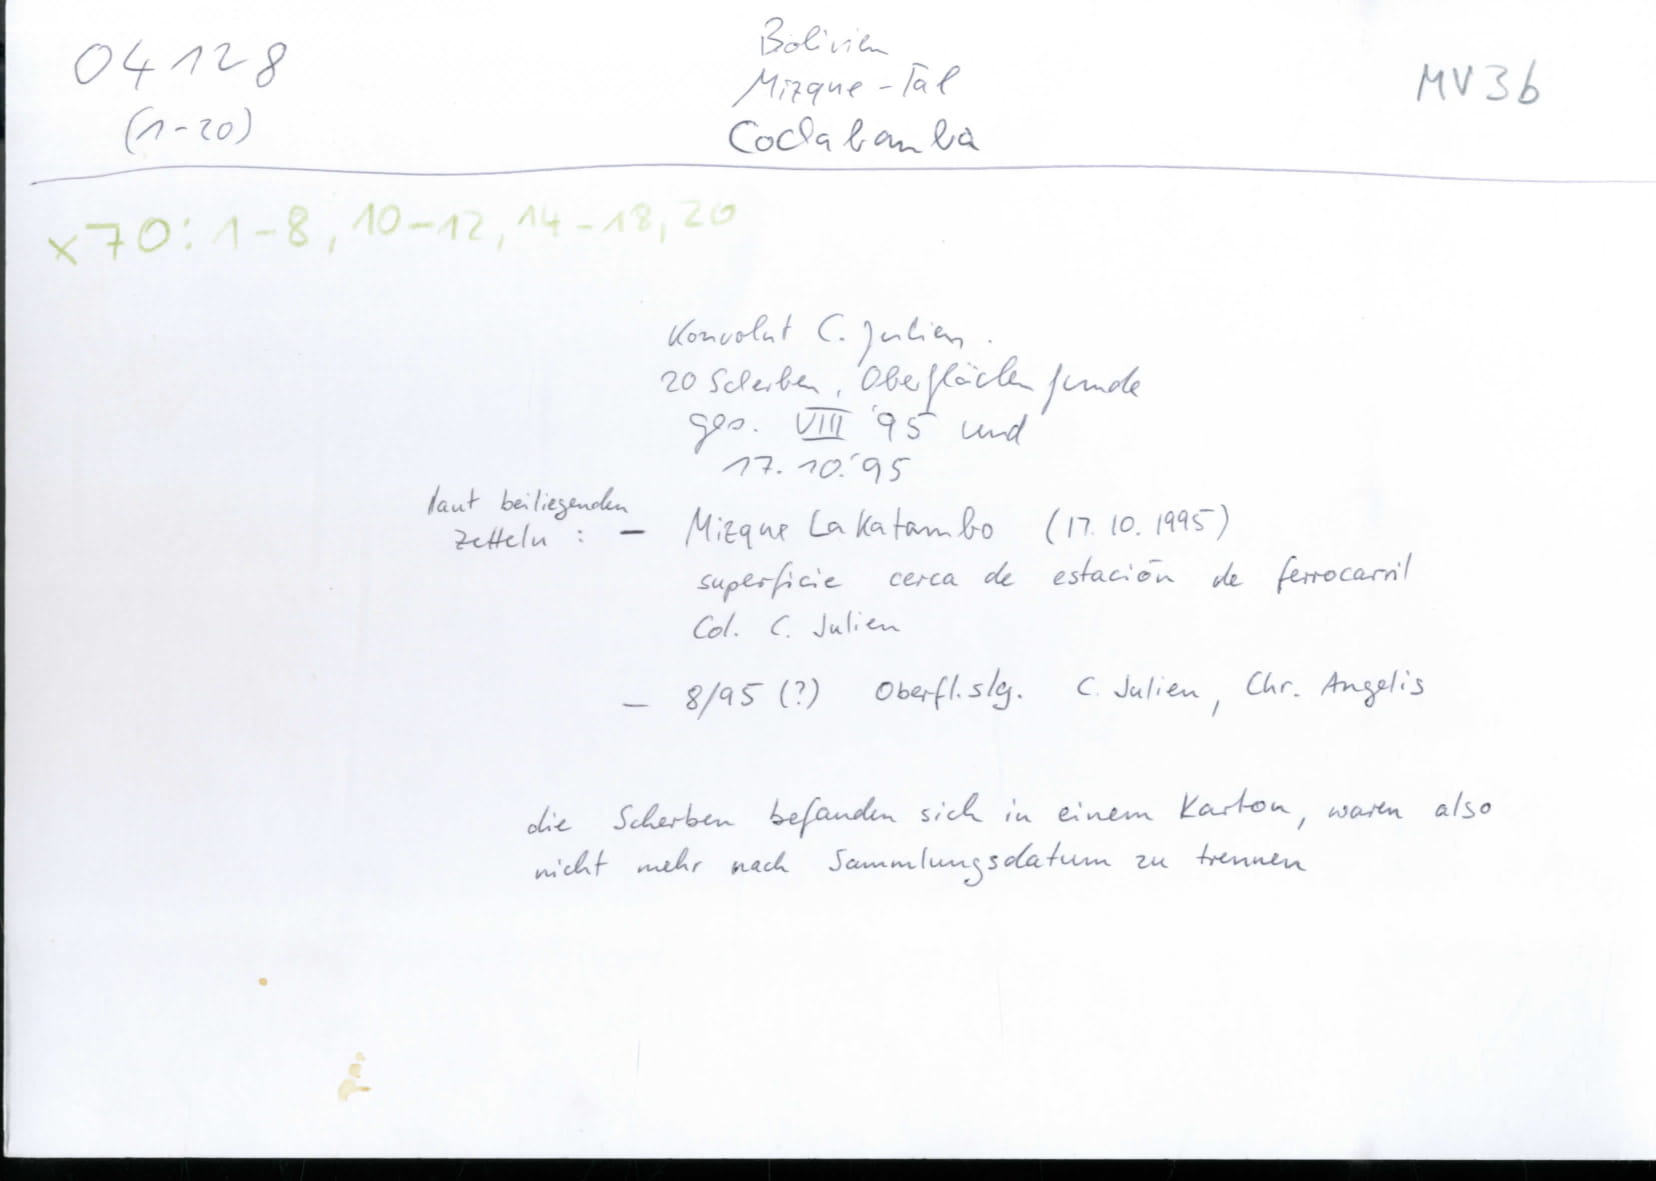 04128
(1-20)
Bolivien
Mizque-Tal
Cochabamba
MV3b
x70: 1-8, 10-12, 14-18, 20
Konvolut C. Julien.
20 Scherben, Oberflächenfunde
ges. VIII '95 und
17.10.'95
laut beiliegenden
Zetteln : – Mizque Lakatambo (17.10.1995)
superficie cerca de estación de ferrocarril
Col. C. Julien
– 8/95 (?) Oberfl.slg. C. Julien, Chr. Angelis
die Scherben befanden sich in einem Karton, waren also
nicht mehr nach Sammlungsdatum zu trennen